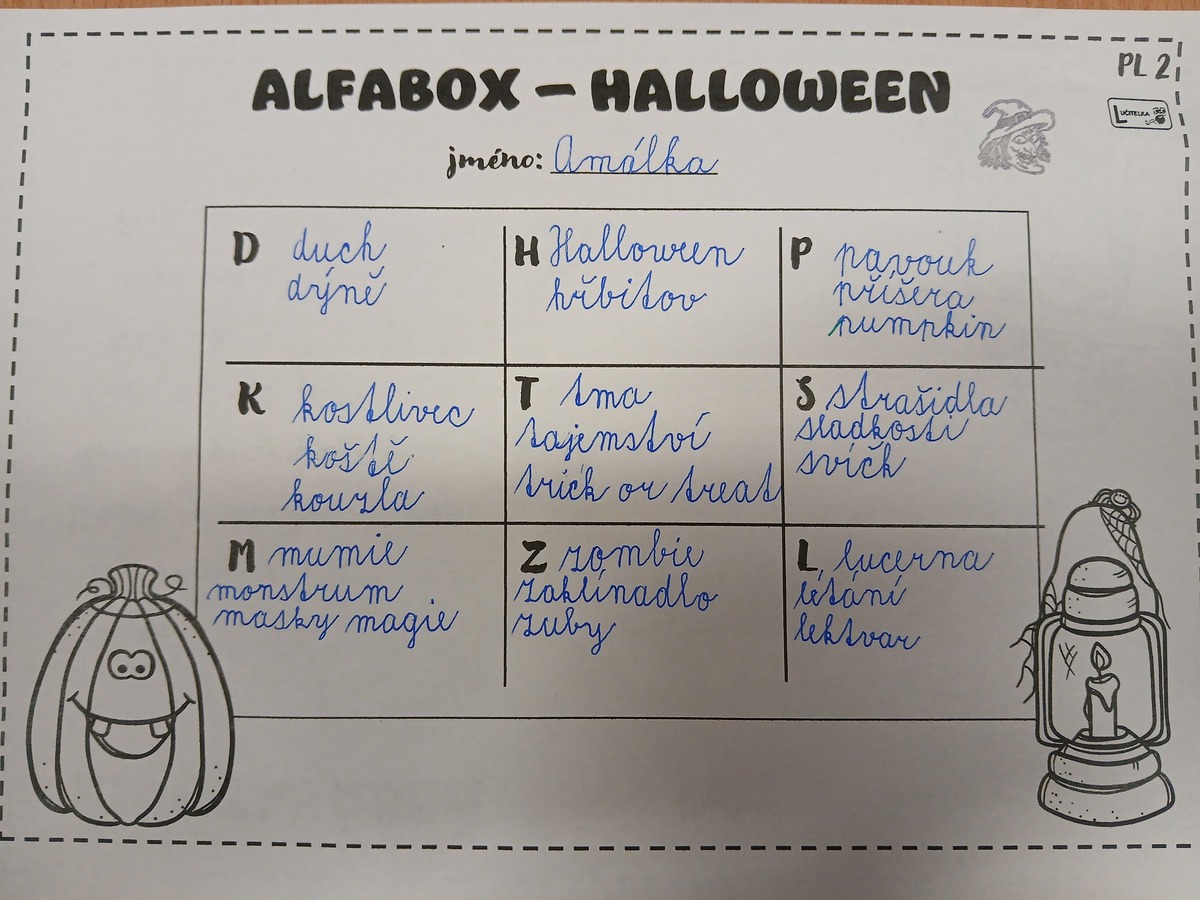 PL 2
ALFABOX – HALLOWEEN
LUČITELKA
jméno: Amálka
D duch
drýně
H Halloween
hřbitov
P pavouk
příšera
pumpkin
K kostlivec
koště
kouzla
T tma
tajemství
trick or treat
S strašidla
sladkosti
svíčk
M mumie
monstrum
masky magie
Z zombie
zaklínadlo
zuby
L lucerna
létání
lektvar